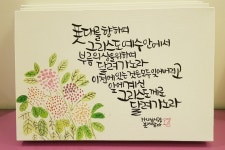 푯대를 향하여
그리스도 예수 안에서
부름의 상을 위하여
달려가노라
이전에 있는 것은 모두 잊어버리고
앞에 계신
그리스도께로
달려가노라